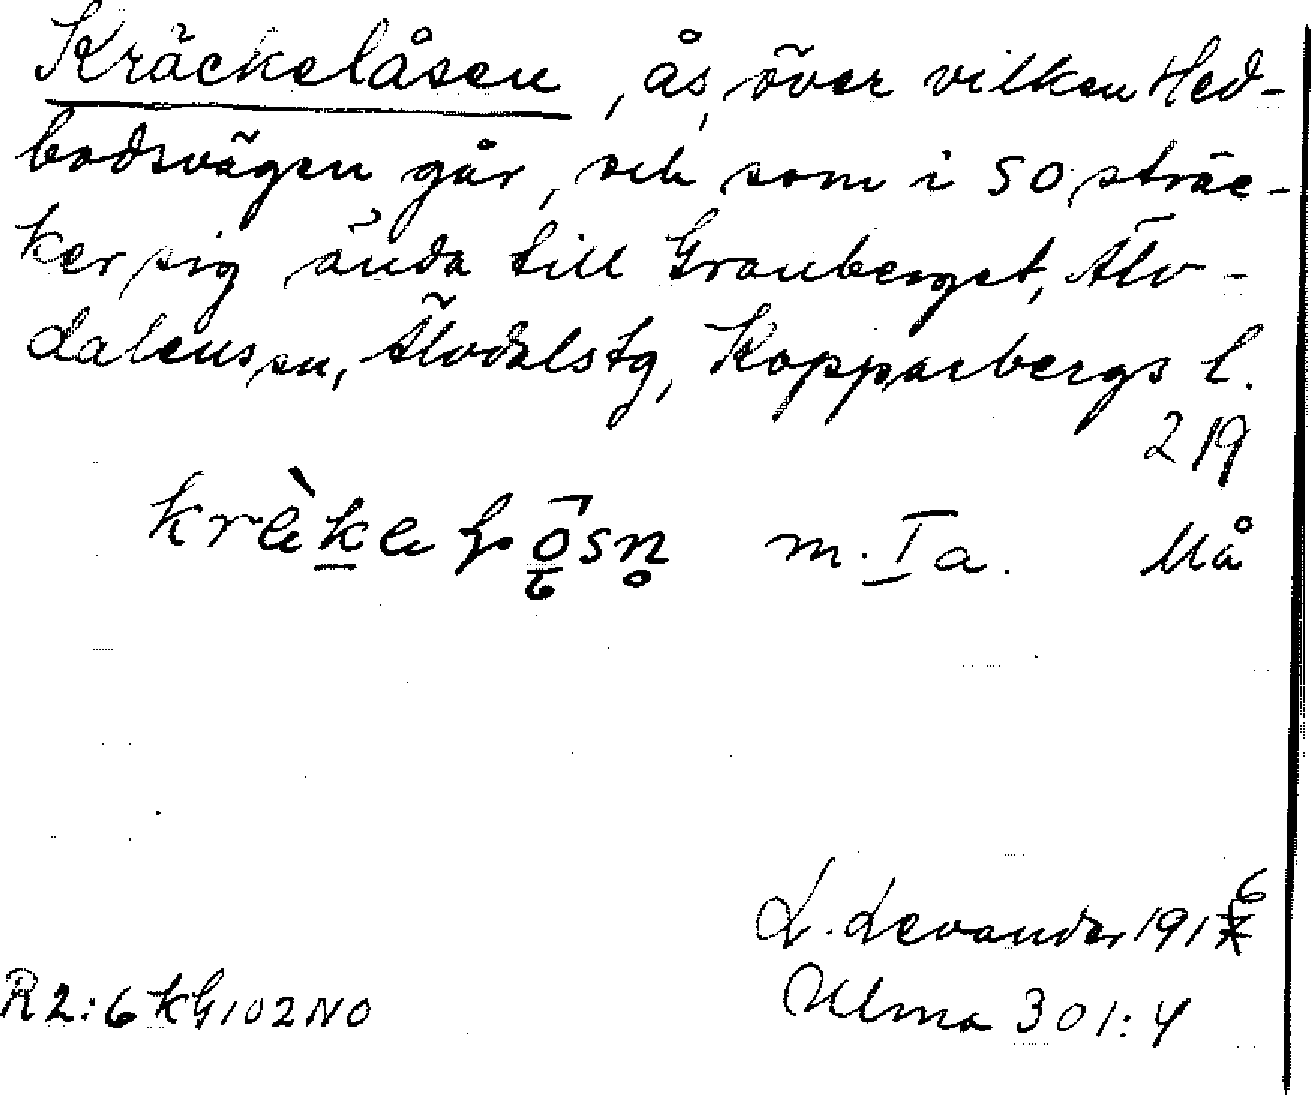 Kräckelåsen, ås, över vilken Hed-
bodsvägen går, och som i SO sträc-
ker sig ända till Granberget, Älv-
dalens sn, Älvdals tg, Kopparbergs l.
219
m. Ia. Må
L. Levander 1916
R2:6 KG102NO
Ulma 301:4